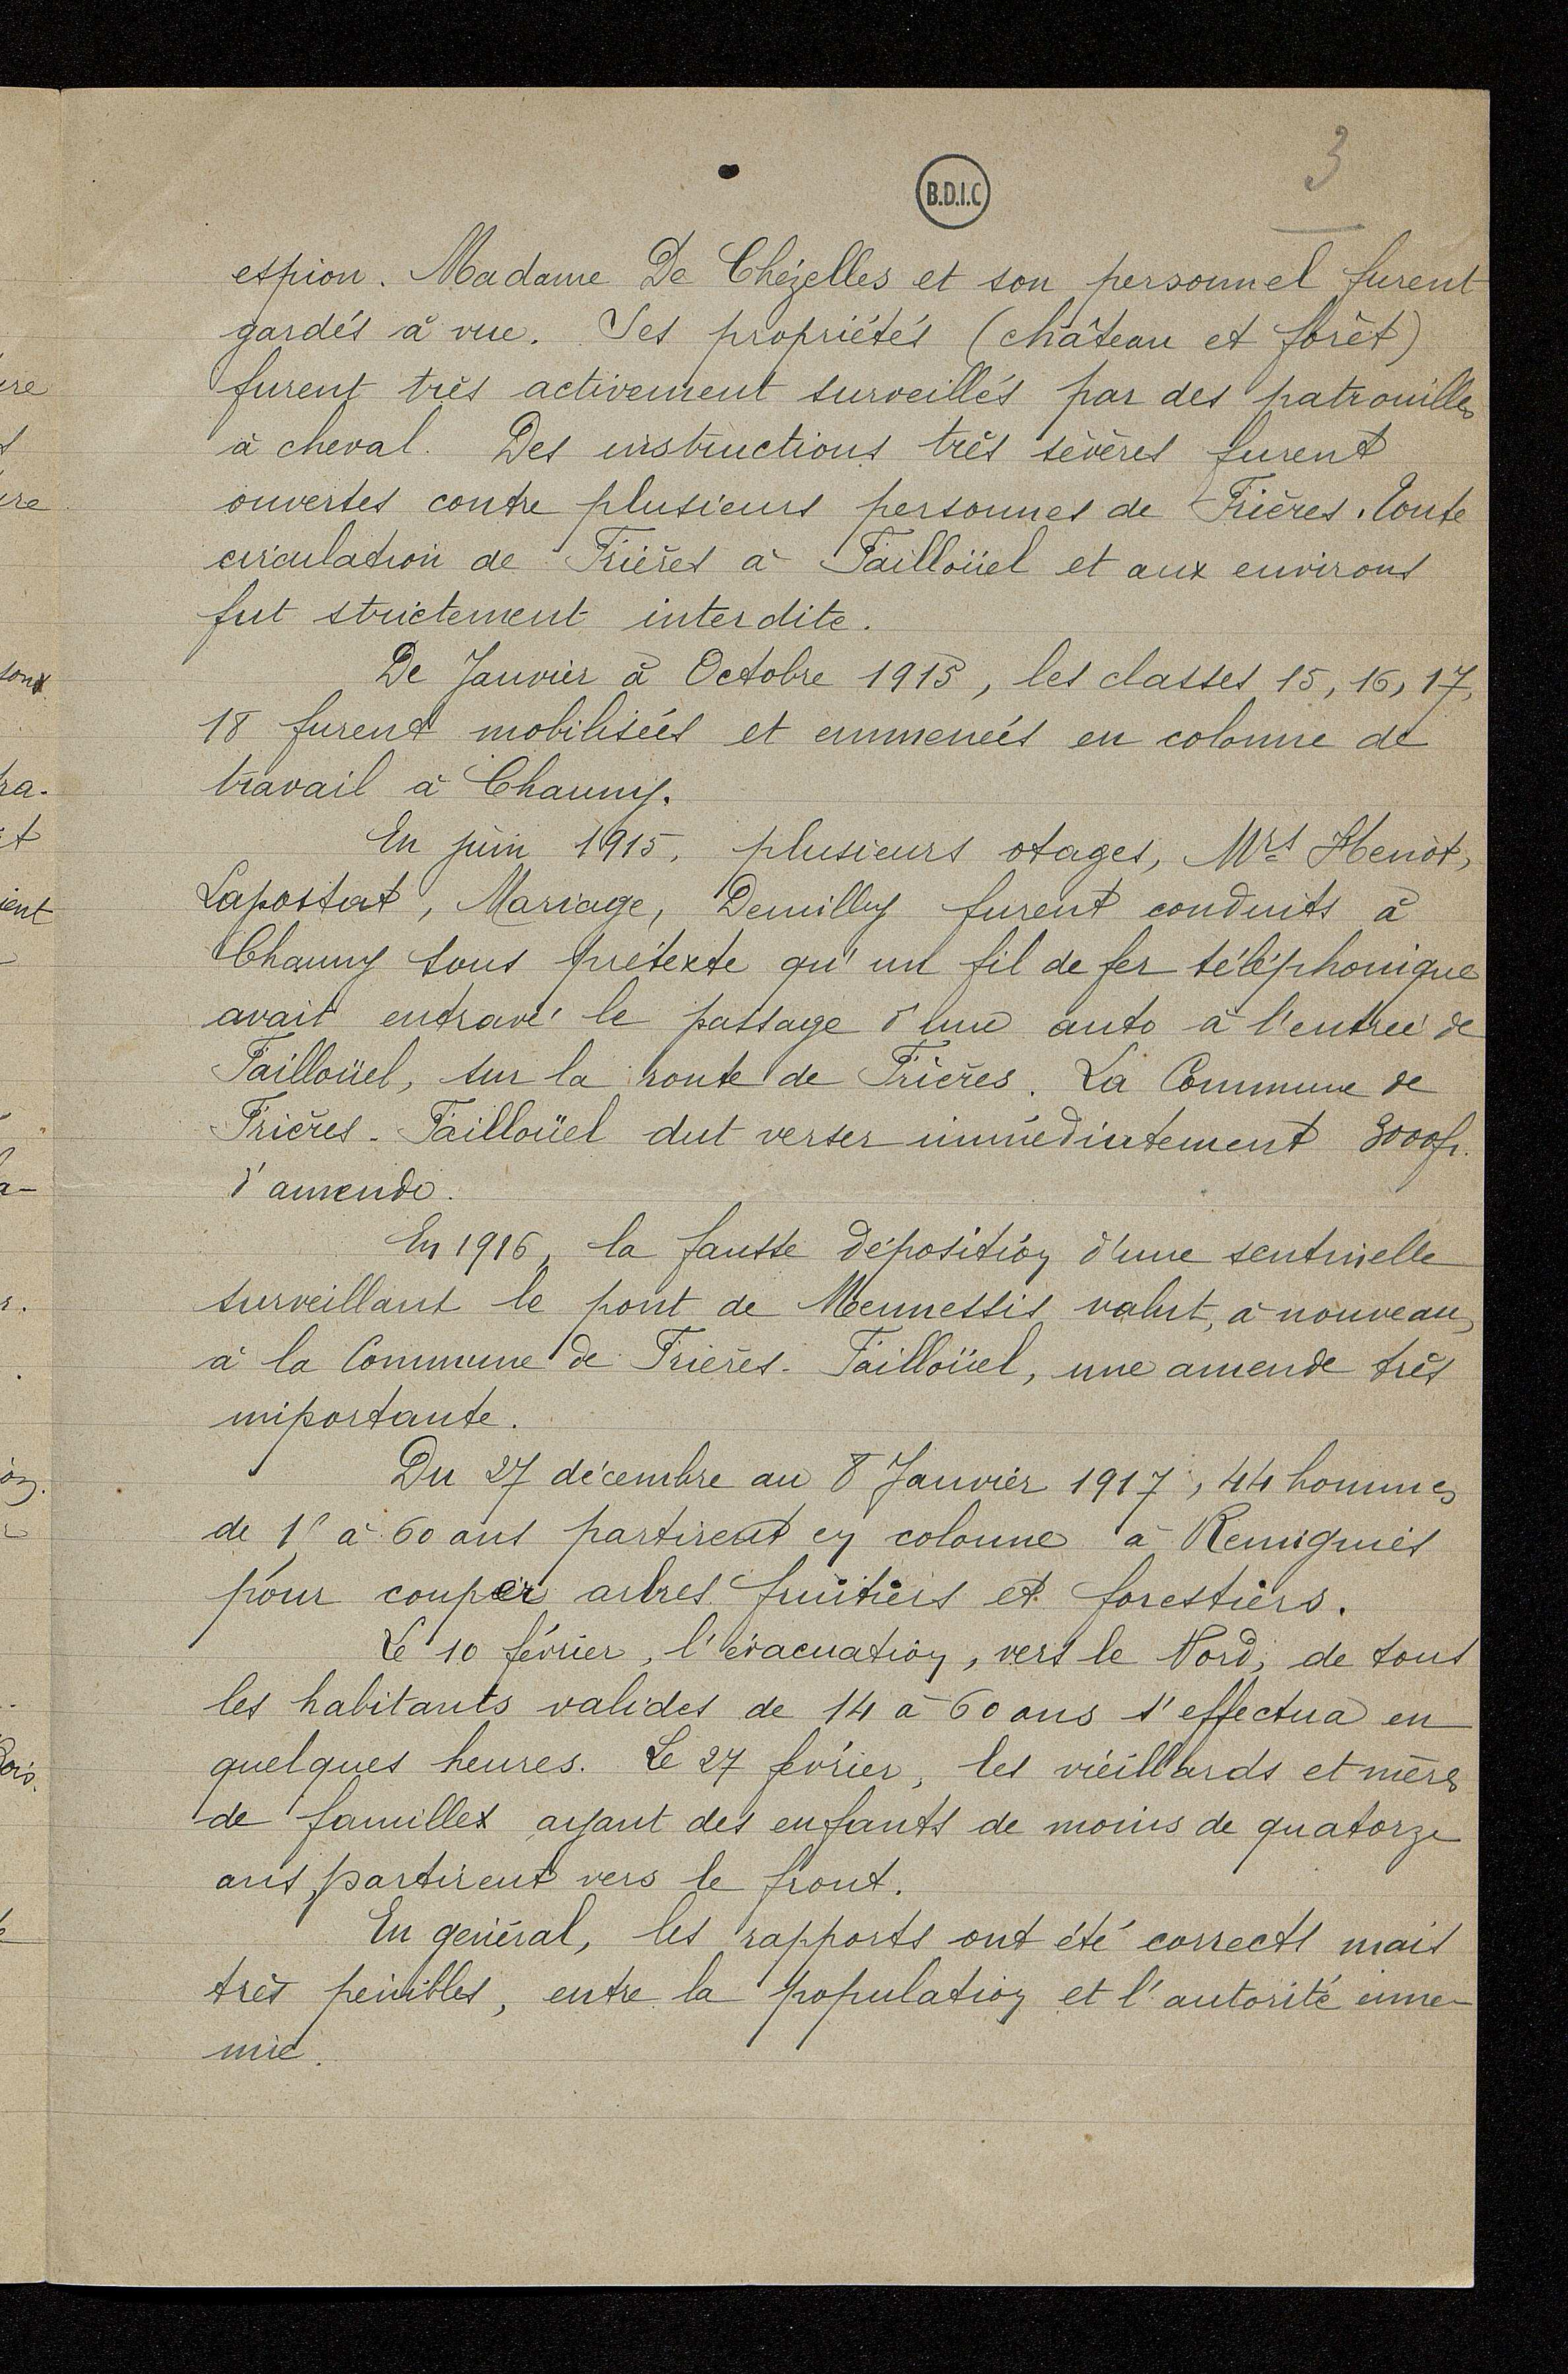 B.D.I.C
3
espion. Madame De Chézelles et son personnel furent
gardés à vue. Ses propriétés (château et forêt)
furent très activement surveillés par des patrouilles
à cheval. Des instructions très sévères furent
ouvertes contre plusieurs personnes de Frières. Toute
circulation de Frières à Faillouël et aux environs
fut strictement interdite.
De Janvier à Octobre 1915, les classes 15, 16, 17,
18 furent mobilisées et emmenées en colonne de
travail à Chauny.
En juin 1915, plusieurs otages, Mrs Henot,
Lapostat, Mariage, Demilly furent conduits à
Chauny sous prétexte qu'un fil de fer téléphonique
avait entravé le passage d'une auto à l'entrée de
Faillouël, sur la route de Frières. La Commune de
Frières-Faillouël dut verser immédiatement 3000f.
d'amende.
En 1916, la fausse déposition d'une sentinelle
surveillant le pont de Mennessis valut, à nouveau,
à la Commune de Frières-Faillouël, une amende très
importante.
Du 27 décembre au 8 Janvier 1917, 44 hommes
de à 60 ans partirent en colonne à Remignies
pour couper arbres fruitiers et forestiers.
Le 10 février, l'évacuation, vers le Nord, de tous
les habitants valides de 14 à 60 ans s'effectua en
quelques heures. Le 27 février, les vieillards et mères
de familles ayant des enfants de moins de quatorze
ans, partirent vers le front.
En général, les rapports ont été corrects mais
très pénibles, entre la population et l'autorité enne-
mie.